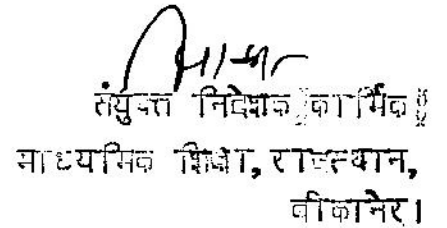 संयुक्त निदेशक (कार्मिक)
माध्यमिक शिक्षा, राजस्थान,
बीकानेर।